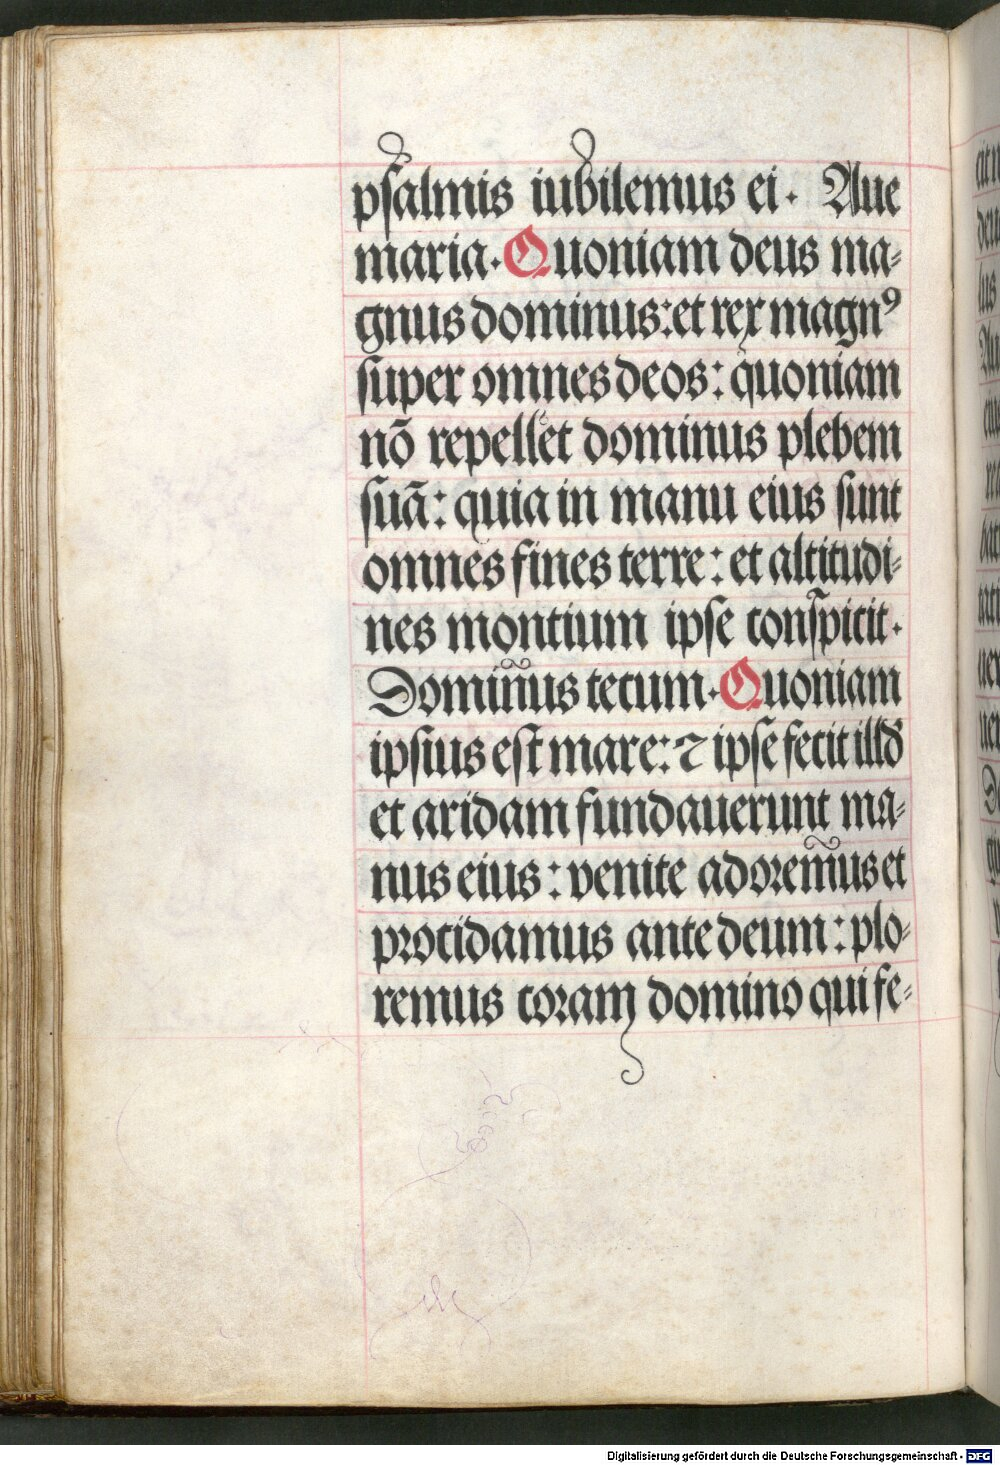 psalmis iubilemus ei. Aue
maria. Quoniam deus ma-
gnus dominus: et rex magnꝰ
super omnes deos: quoniam
nō repellet dominus plebem
suā: quia in manu eius sunt
omnes fines terre: et altitudi-
nes montium ipse conspicit.
Dominus tecum. Quoniam
ipsius est mare: ⁊ ipse fecit illd̄
et aridam fundauerunt ma-
nus eius: venite adoremus et
procidamus ante deum: plo-
remus coram domino qui fe-
Digitalisierung gefördert durch die Deutsche Forschungsgemeinschaft - DFG